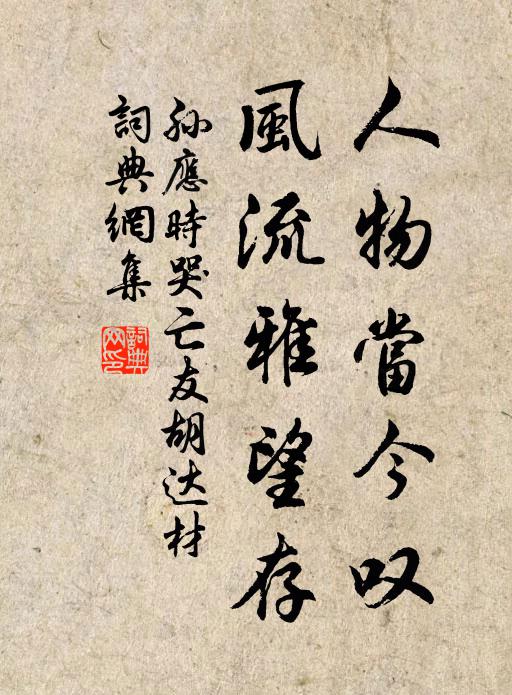 人物當今叹
風流雅望存
孙應時哭亡友胡达材
詞典網集
詞典网印